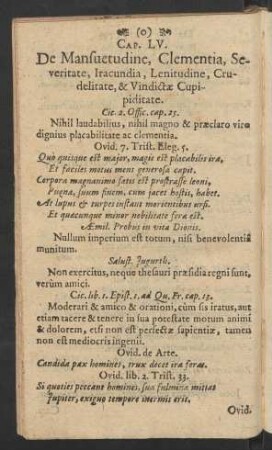 (0)
CAP. LV.
De Mansuetudine, Clementia, Se-
veritate, Iracundia, Lenitudine, Cru-
delitate, & Vindictæ Cupi-
piditate.
Cic. 2. Offic. cap. 25.
Nihil laudabilius, nihil magno & præclaro viro
dignius placabilitate ac clementia.
Ovid. 7. Trist. Eleg. 5.
Quo quisque est major, magis est placabilis iræ,
Et faciles motus mens generosa capit.
Corpora magnanimo satis est prostrasse leoni,
Pugna, suum finem, cum jacet hostis, habet.
At lupus & turpes instant morientibus ursi.
Et quæcunque minor nobilitate fera est.
Æmil. Probus in vita Dionis.
Nullum imperium est totum, nisi benevolentiâ
munitum.
Salust. Jugurth.
Non exercitus, neque thesauri præsidia regni sunt,
verùm amici.
Cic. lib. 1. Epist. 1. ad Qu. Fr. cap. 13.
Moderari & amico & orationi, cùm sis iratus, aut
etiam tacere & tenere in sua potestate motum animi
& dolorem, etsi non est perfectæ sapientiæ, tamen
non est mediocris ingenii.
Ovid. de Arte.
Candida pax homines, trux decet ira feras.
Ovid. lib. 2. Trist. 33.
Si quoties peccant homines, sua fulmina mittat
Jupiter, exiguo tempore inermis erit.
Ovid.